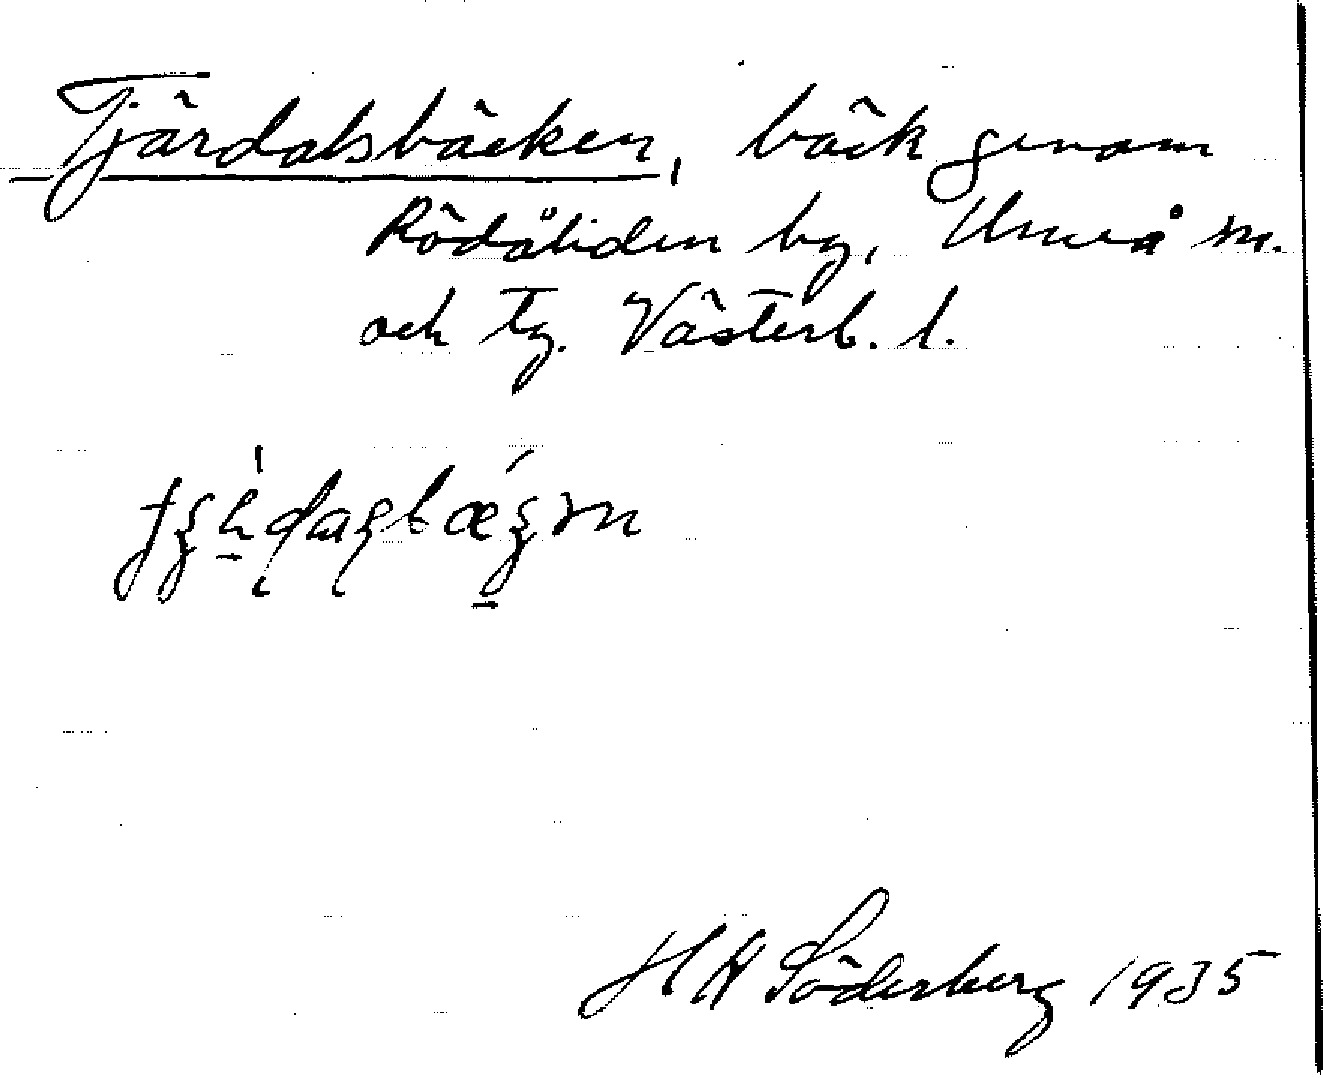 Tjärdalsbäcken, bäck genom
Rödåliden by, Umeå sn.
och tg. Västerb. l.
H A Söderberg 1935